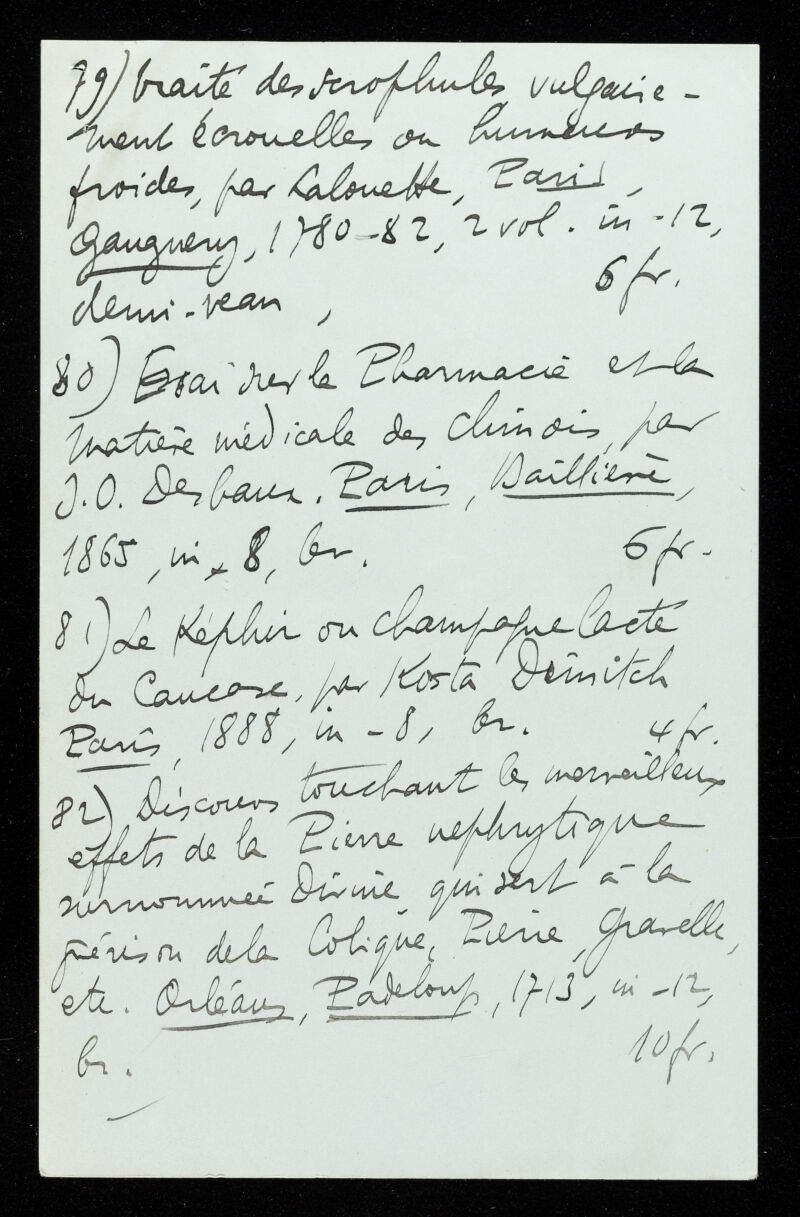 79) traité des scrophules, vulgaire-
ment écrouelles ou humeurs
froides, par Lalouette, Paris,
Gauguery, 1780-82, 2 vol. in-12,
demi-veau, 6 fr.
80) Essai sur la Pharmacie et la
matière médicale des chinois, par
J.O. Debaux. Paris, Baillière,
1865, in-8, br. 6 fr.
81) Le Képhir ou champagne lacté
du Caucase, par Kosta Dinitch
Paris, 1888, in-8, br. 4 fr.
82) Discours touchant les merveilleux
effets de la Pierre nephrytique
surnommée Divine, qui sert à la
guérison de la Colique, Pierre, Gravelle,
etc. Orléans, Padeloup, 1713, in-12,
br. 10 fr.